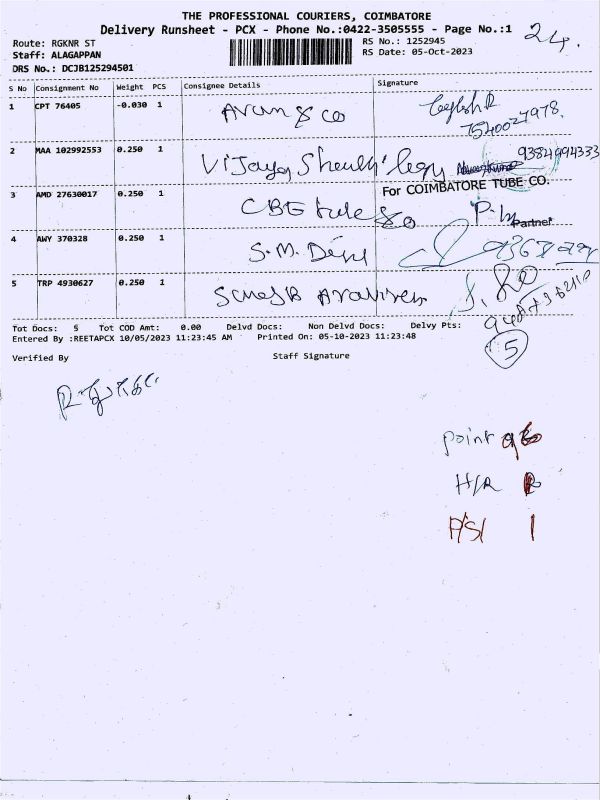 THE PROFESSIONAL COURIERS, COIMBATORE
Delivery Runsheet - PCX - Phone No.:0422-3505555 - Page No.:1
24.
Route: RGKNR ST
RS No.: 1252945
Staff: ALAGAPPAN
RS Date: 05-Oct-2023
DRS No.: DCJB125294501
S No Consignment No Weight PCS Consignee Details Signature
1 CPT 76405 -0.030 1 Arun & co
7540027978.
2 MAA 102992553 0.250 1 Vijaya 9384994333
For COIMBATORE TUBE CO.
3 AMD 27630017 0.250 1 CBE tube & co
Partner
4 AWY 370328 0.250 1 S.M. Devi
5 TRP 4930627 0.250 1
Tot Docs: 5 Tot COD Amt: 0.00 Delvd Docs: Non Delvd Docs: Delvy Pts:
Entered By :REETAPCX 10/05/2023 11:23:45 AM Printed On: 05-10-2023 11:23:48
5
Verified By Staff Signature
point
H/R
P/S/ 1